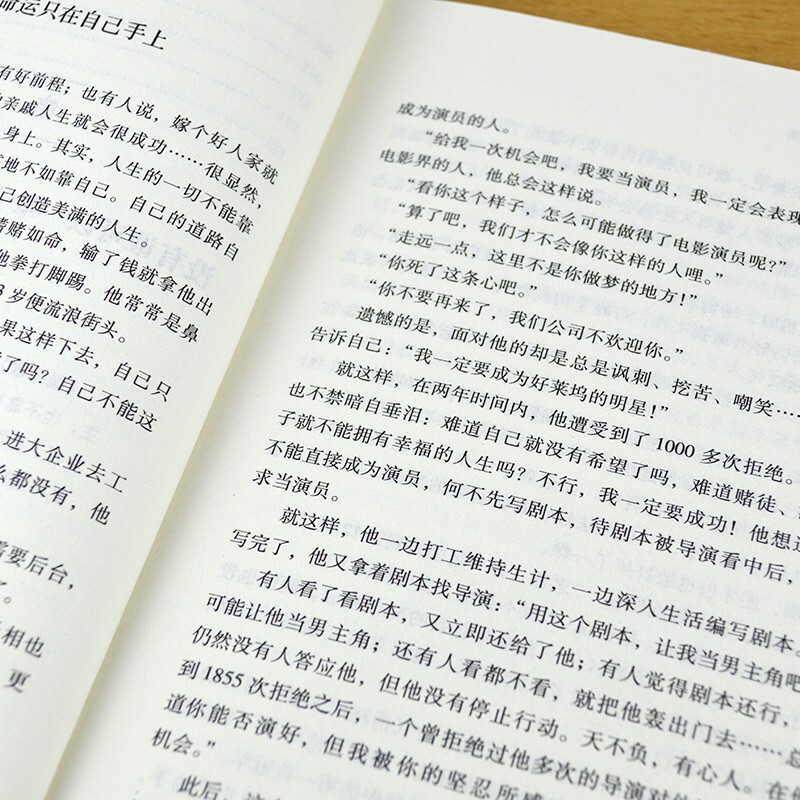 命运只在自己手上
有好前程；也有人说，嫁个好人家就
亲戚人生就会很成功……很显然，
身上。其实，人生的一切不能靠
地不如靠自己。自己的道路自
己创造美满的人生。
嗜赌如命，输了钱就拿他出
他拳打脚踢。他常常是鼻
岁便流浪街头。
果这样下去，自己只
了吗？自己不能这
进大企业去工
么都没有，他
需要后台，
相也
更
成为演员的人。
“给我一次机会吧，我要当演员，我一定会表现
电影界的人，他总会这样说。
“看你这个样子，怎么可能做得了电影演员呢？”
“算了吧，我们才不会像你这样的人哩。”
“走远一点，这里不是你做梦的地方！”
“你死了这条心吧。”
“你不要再来了，我们公司不欢迎你。”
遗憾的是，面对他的却是总是讽刺、挖苦、嘲笑……
告诉自己：“我一定要成为好莱坞的明星！”
就这样，在两年时间内，他遭受到了1000多次拒绝。
也不禁暗自垂泪：难道自己就没有希望了吗，难道赌徒、
子就不能拥有幸福的人生吗？不行，我一定要成功！他想
不能直接成为演员，何不先写剧本，待剧本被导演看中后，
求当演员。
就这样，他一边打工维持生计，一边深入生活编写剧本。
写完了，他又拿着剧本找导演：“用这个剧本，让我当男主角吧
有人看了看剧本，又立即还给了他；有人觉得剧本还行，
可能让他当男主角；还有人看都不看，就把他轰出门去……总
仍然没有人答应他，但他没有停止行动。天不负，有心人。在他
到1855次拒绝之后，一个曾拒绝过他多次的导演对他
道你能否演好，但我被你的坚忍所感
机会。”
此后，这